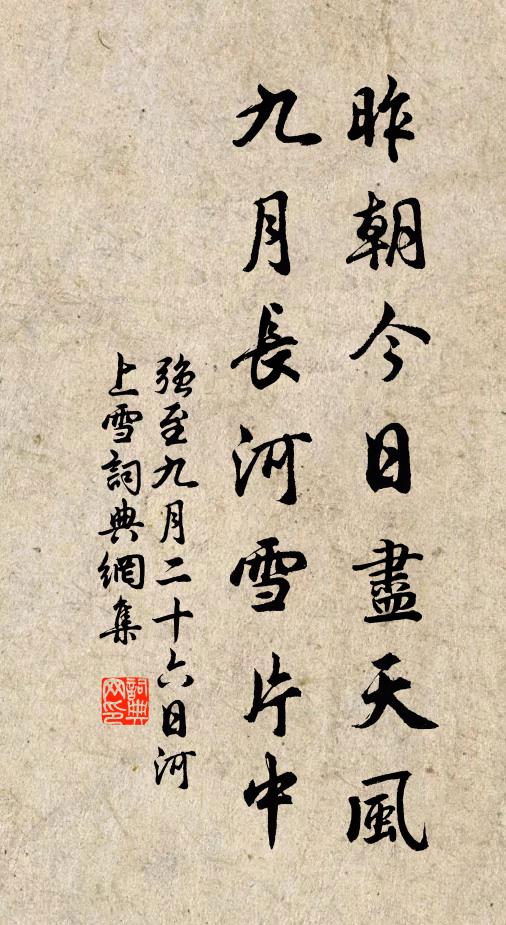 昨朝今日盡天風
九月長河雪片中
強至九月二十六日河
上雪詞典網集
詞典
网印